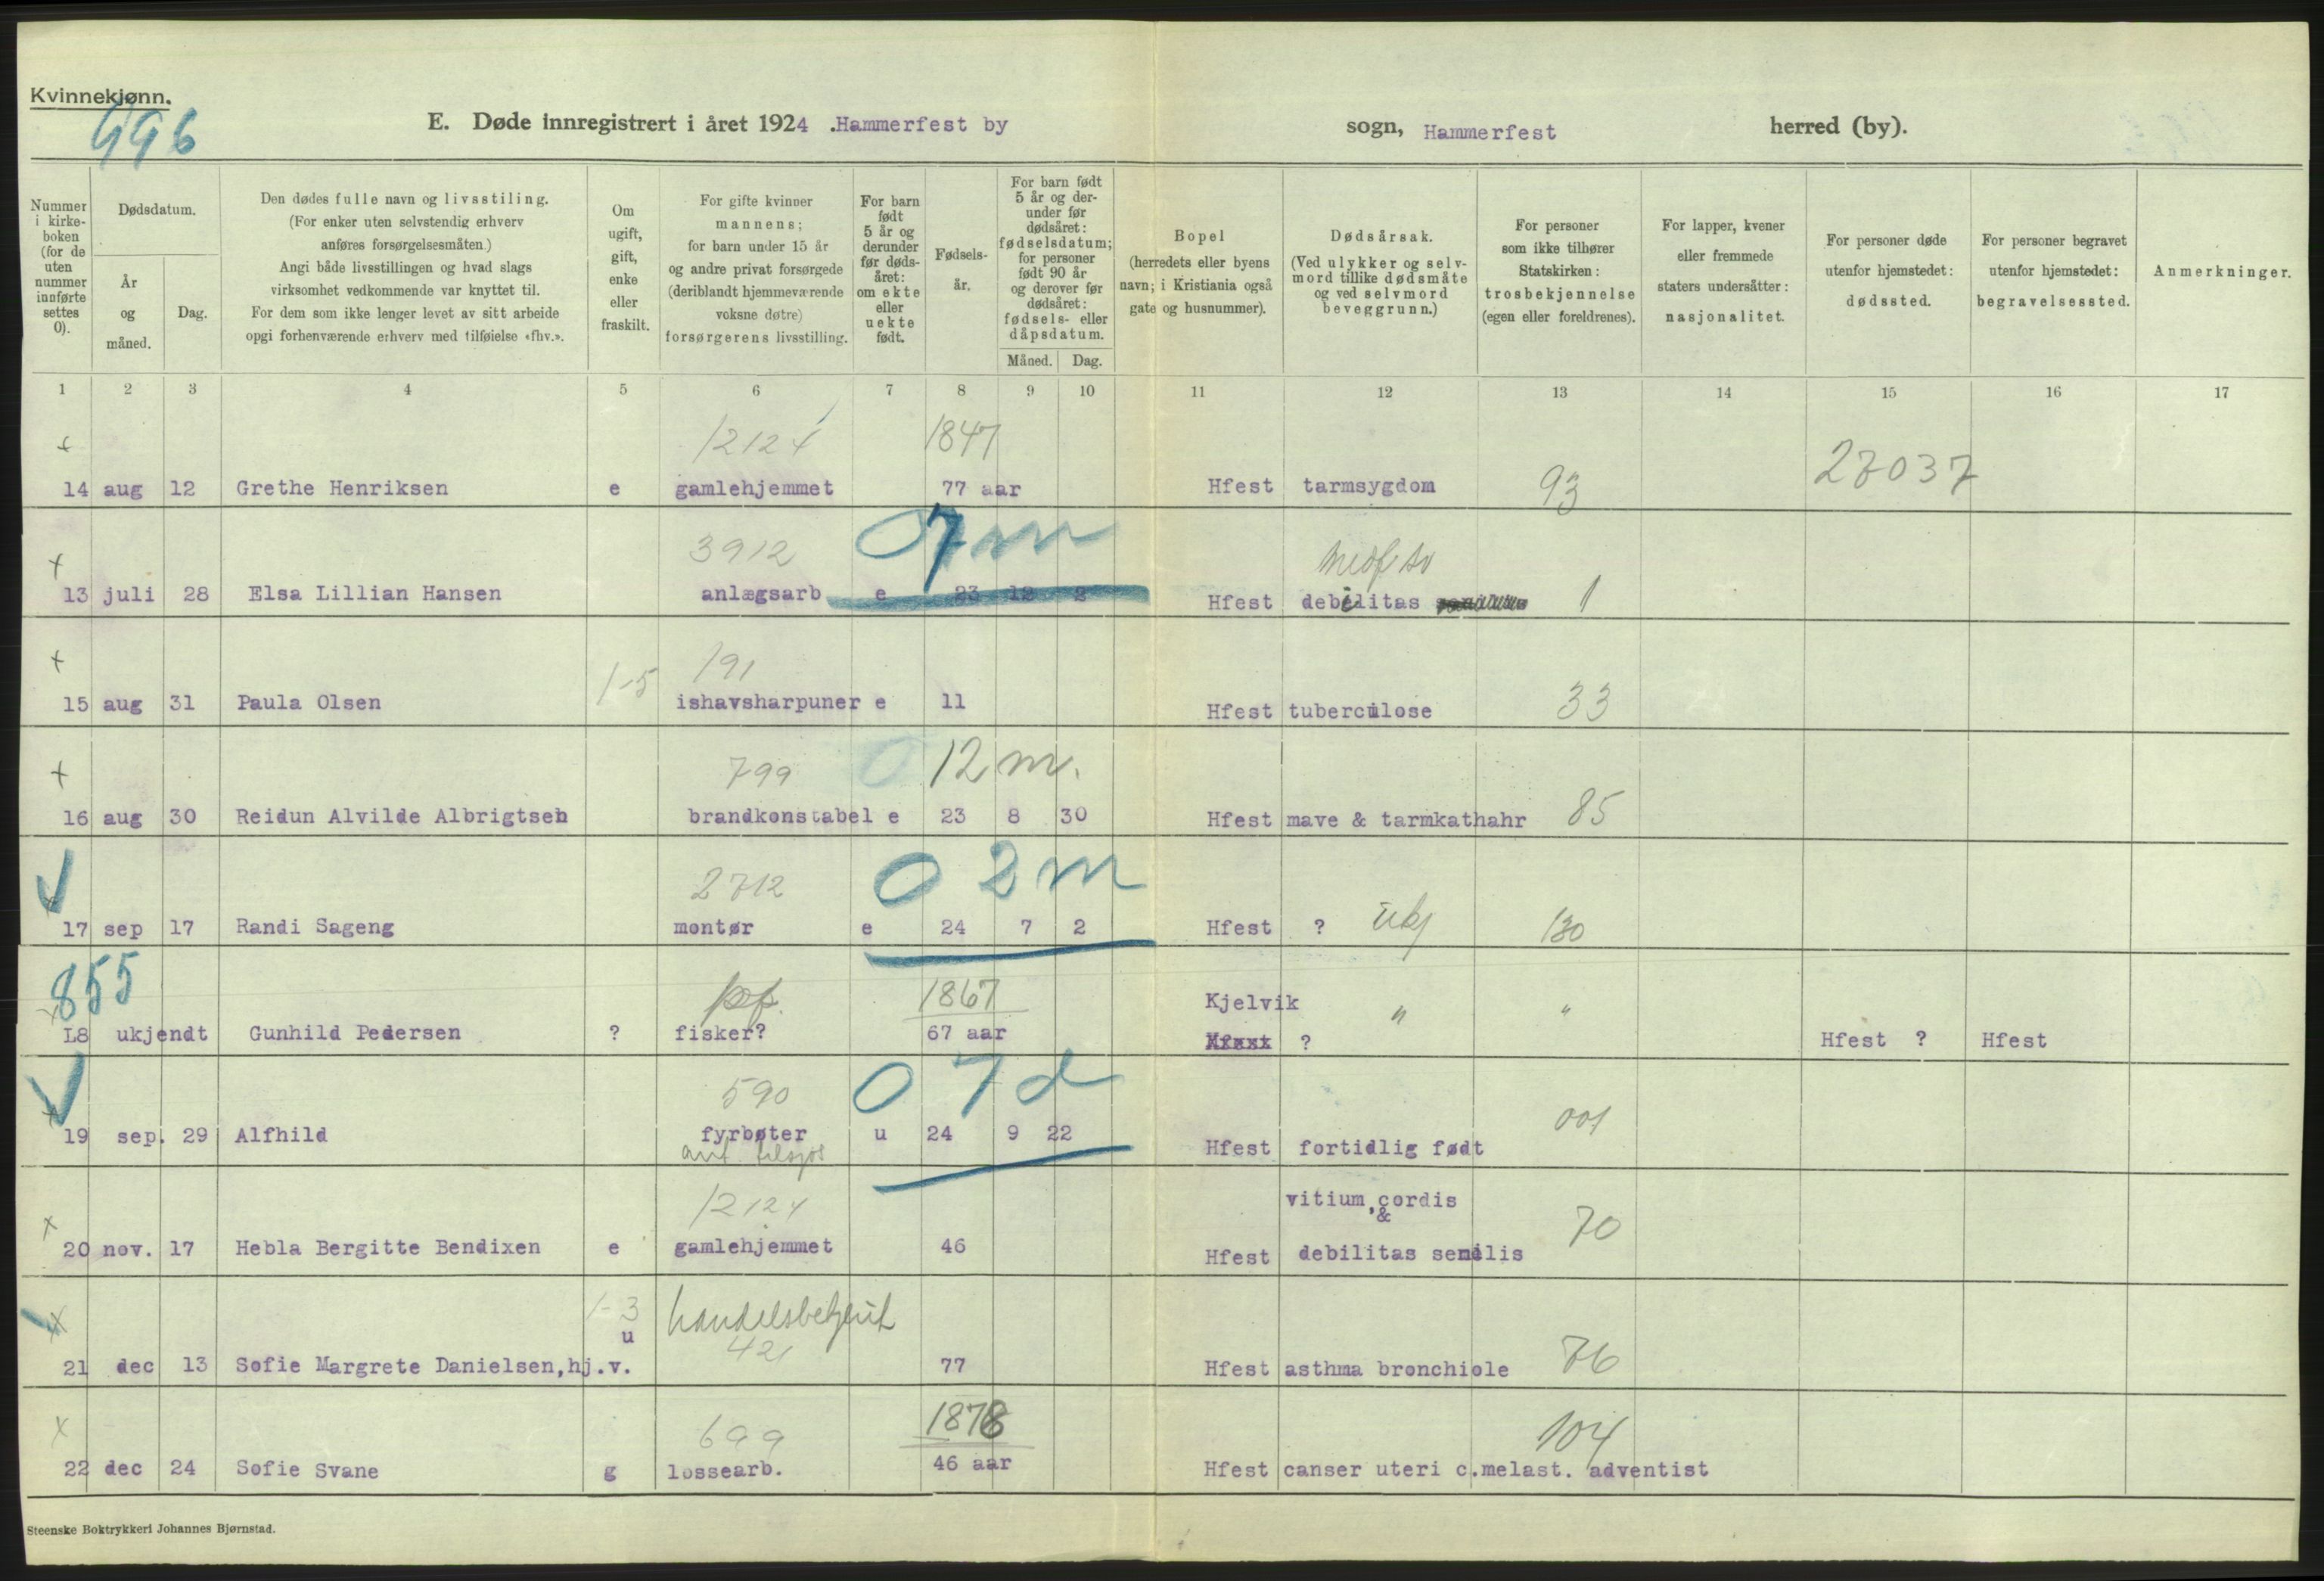 Kvinnekjønn.
996
E. Døde innregistrert i året 1924 .Hammerfest by sogn, Hammerfest herred (by).
Nummer i kirke-boken (for de uten nummer innførte settes 0).
Dødsdatum.
År og måned.
Dag.
Den dødes fulle navn og livsstiling.
(For enker uten selvstendig erhverv
anføres forsørgelsesmåten.)
Angi både livsstillingen og hvad slags
virksomhet vedkommende var knyttet til.
For dem som ikke lenger levet av sitt arbeide
opgi forhenværende erhverv med tilføielse «fhv.».
Om ugift, gift, enke eller fraskilt.
For gifte kvinner
mannens;
for barn under 15 år
og andre privat forsørgede
(deriblandt hjemmeværende
voksne døtre)
forsørgerens livsstilling.
For barn født 5 år og derunder før døds-året: om ekte eller uekte født.
Fødsels-år.
For barn født 5 år og der-under før dødsåret: fødselsdatum; for personer født 90 år og derover før dødsåret: fødsels- eller dåpsdatum.
Måned. Dag.
Bopel
(herredets eller byens
navn; i Kristiania også
gate og husnummer).
Dødsårsak.
(Ved ulykker og selv-
mord tillike dødsmåte
og ved selvmord
beveggrunn.)
For personer
som ikke tilhører
Statskirken:
trosbekjennelse
(egen eller foreldrenes).
For lapper, kvener
eller fremmede
staters undersåtter:
nasjonalitet.
For personer døde
utenfor hjemstedet:
dødssted.
For personer begravet
utenfor hjemstedet:
begravelsessted.
Anmerkninger.
1 2 3 4 5 6 7 8 9 10 11 12 13 14 15 16 17
12124 1847
14 aug 12 Grethe Henriksen e gamlehjemmet 77 aar Hfest tarmsygdom 93 27037
3912 0 7 m
13 juli 28 Elsa Lillian Hansen anlægsarb e 23 12 2 Hfest debilitas 1
191
15 aug 31 Paula Olsen 1-5 ishavsharpuner e 11 Hfest tuberculose 33
799 0 12 m.
16 aug 30 Reidun Alvilde Albrigtsen brandkonstabel e 23 8 30 Hfest mave & tarmkathahr 85
2712 0 2 m
17 sep 17 Randi Sageng montør e 24 7 2 Hfest ? ukj 130
855 1867 Kjelvik " "
18 ukjendt Gunhild Pedersen ? fisker? 67 aar Hfest ? Hfest ? Hfest
590 0 7 d
19 sep. 29 Alfhild fyrbøter u 24 9 22 Hfest fortidlig født 001
12124 vitium cordis
&
20 nov. 17 Hebla Bergitte Bendixen e gamlehjemmet 46 Hfest debilitas senilis 70
1-3 handelsbetjent
u 421
21 dec 13 Sofie Margrete Danielsen, hj.v. 77 Hfest asthma bronchiole 76
699 1878 104
22 dec 24 Sofie Svane g lossearb. 46 aar Hfest canser uteri c.melast. adventist
Steenske Boktrykkeri Johannes Bjørnstad.